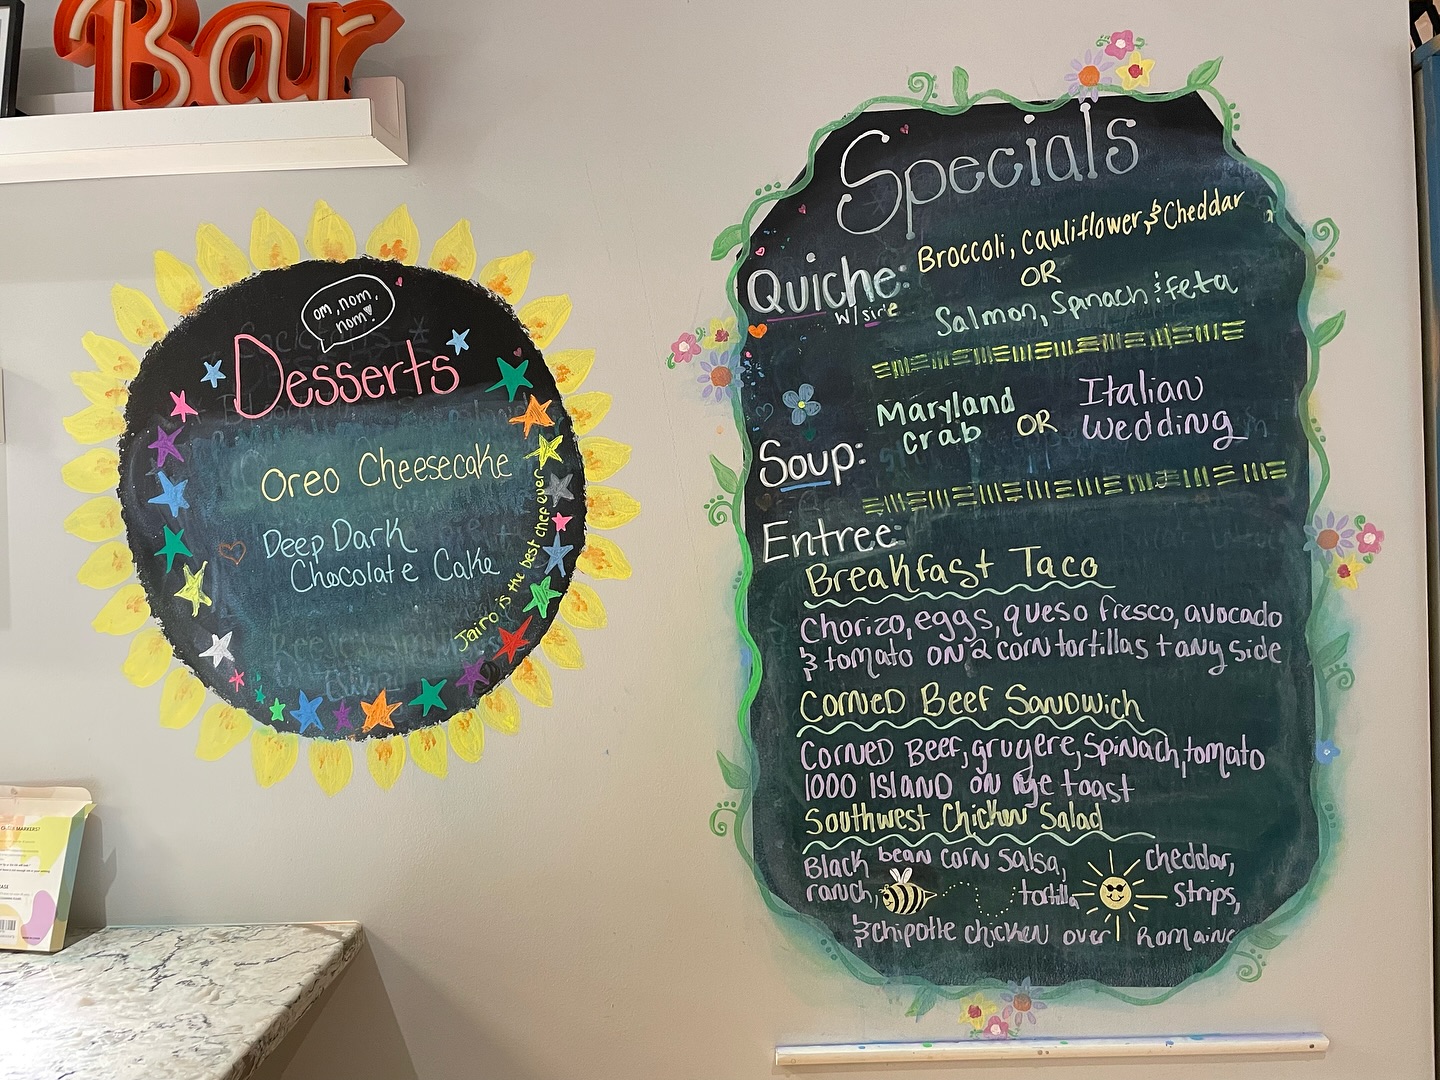 Bar
om, nom,
nom
Desserts
Oreo Cheesecake
Deep Dark
Chocolate Cake
Jairo is the best chef ever
Specials
Quiche: Broccoli, Cauliflower & Cheddar
w/ side
OR
Salmon, Spinach & feta
Soup: Maryland
Crab OR Italian
Wedding
Entree:
Breakfast Taco
Chorizo, eggs, queso fresco, avocado
& tomato on 2 corn tortillas + any side
Corned Beef Sandwich
Corned Beef, gruyere, Spinach, tomato
1000 Island on rye toast
Southwest Chicken Salad
Black bean corn salsa, cheddar,
ranch, tortilla strips,
& chipotle chicken over Romaine